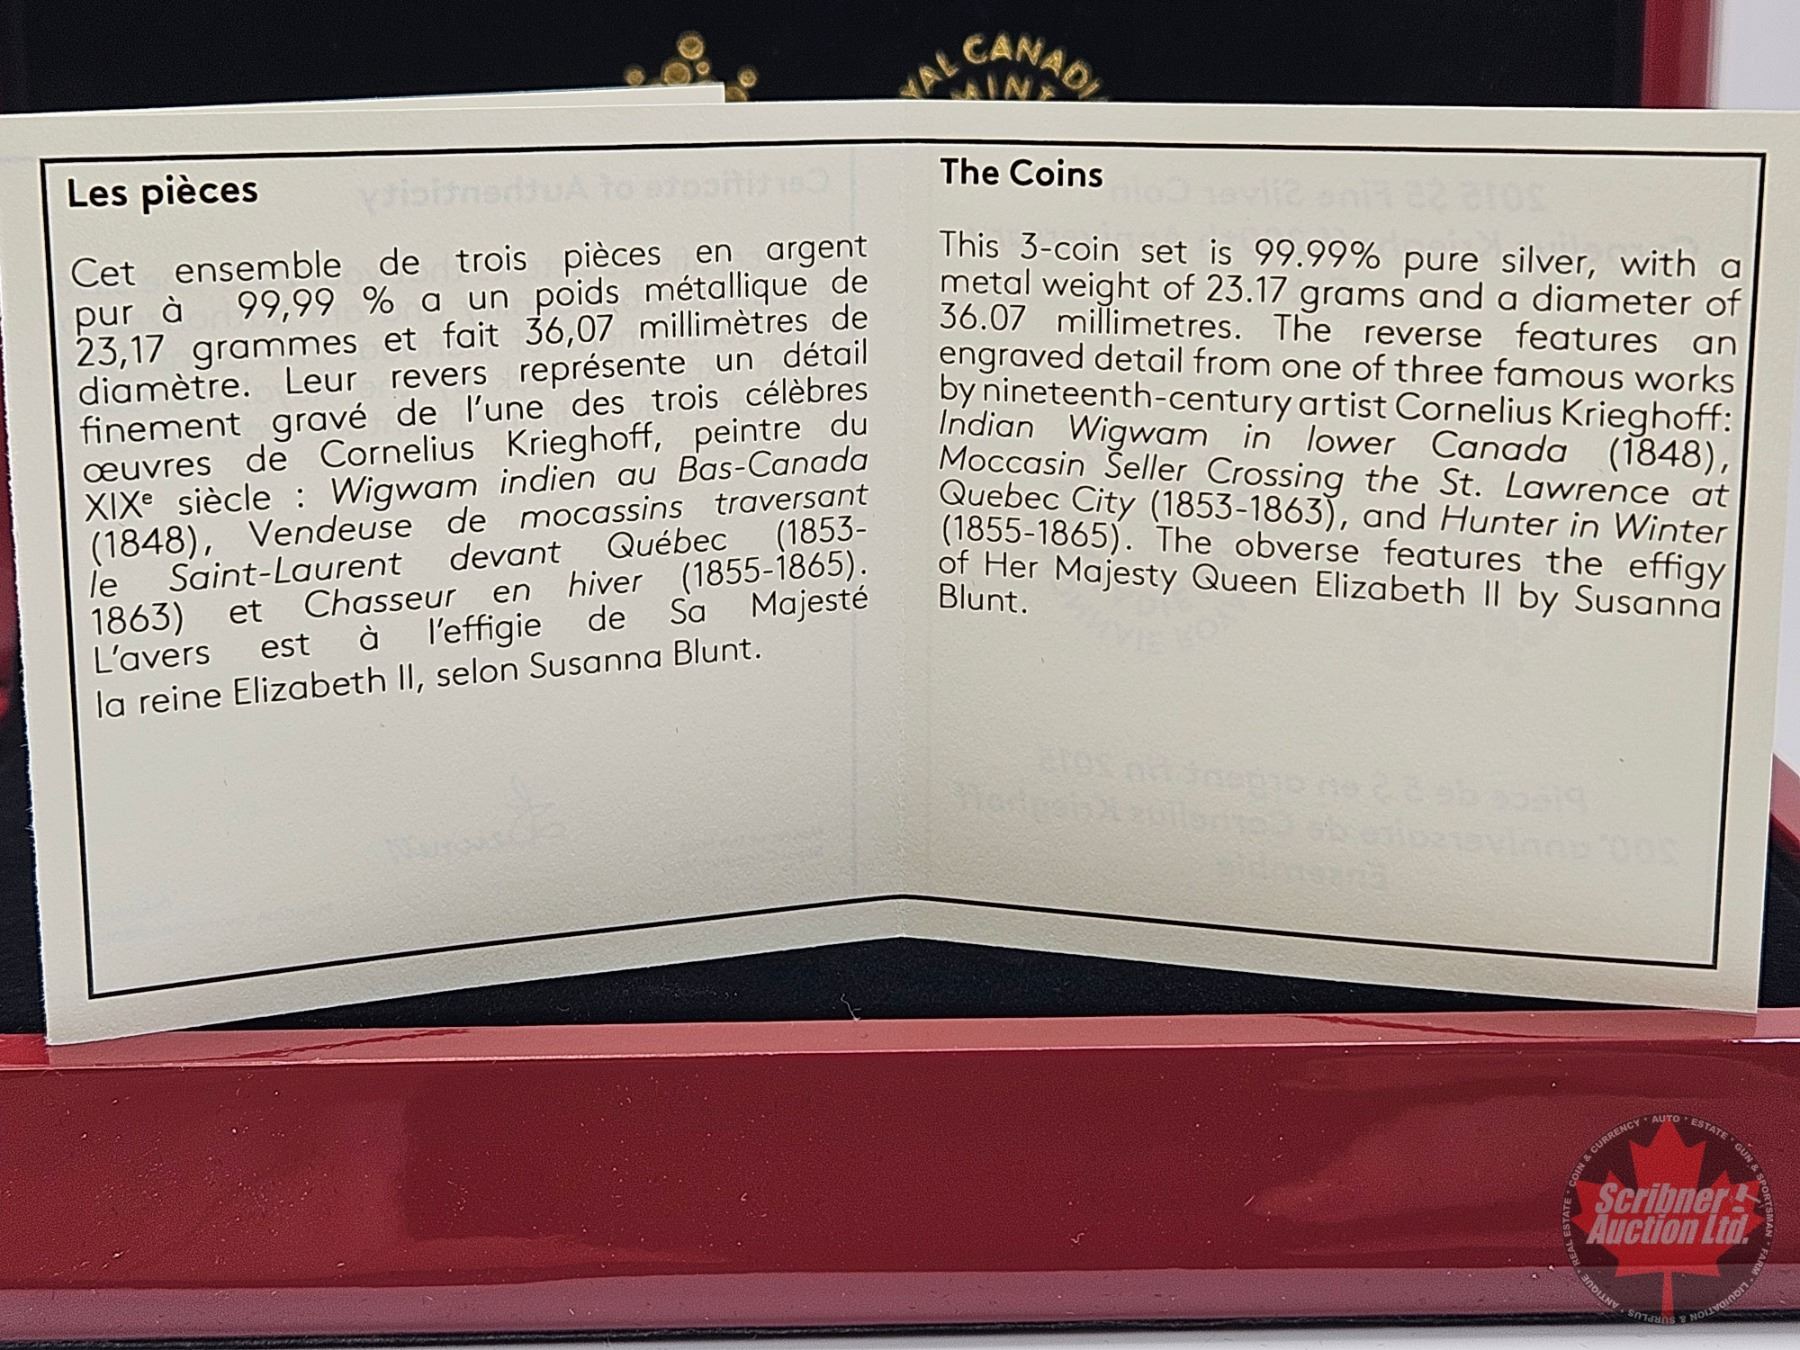 ROYAL CANADI
MINT
Les pièces
Cet ensemble de trois pièces en argent
pur à 99,99 % a un poids métallique de
23,17 grammes et fait 36,07 millimètres de
diamètre. Leur revers représente un détail
finement gravé de l'une des trois célèbres
œuvres de Cornelius Krieghoff, peintre du
XIXe siècle : Wigwam indien au Bas-Canada
(1848), Vendeuse de mocassins traversant
le Saint-Laurent devant Québec (1853-
1863) et Chasseur en hiver (1855-1865).
L'avers est à l'effigie de Sa Majesté
la reine Elizabeth II, selon Susanna Blunt.
The Coins
This 3-coin set is 99.99% pure silver, with a
metal weight of 23.17 grams and a diameter of
36.07 millimetres. The reverse features an
engraved detail from one of three famous works
by nineteenth-century artist Cornelius Krieghoff:
Indian Wigwam in lower Canada (1848),
Moccasin Seller Crossing the St. Lawrence at
Quebec City (1853-1863), and Hunter in Winter
(1855-1865). The obverse features the effigy
of Her Majesty Queen Elizabeth II by Susanna
Blunt.
Certificate of Authenticity
2015 $5 Fine Silver Coin
Pièce de 5 $ en argent fin 2015
200e anniversaire de Cornelius Krieghoff
Ensemble
COIN & CURRENCY · AUTO · ESTATE · GUN & SPORTSMAN · FARM · LIQUIDATION & SURPLUS · ANTIQUE · REAL ESTATE ·
Scribner
Auction Ltd.